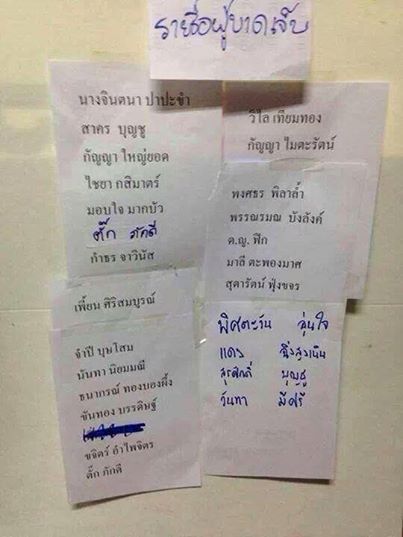 รายชื่อผู้บาดเจ็บ
นางจินตนา ปาปะขำ
สาคร บุญชู
กัญญา ใหญ่ยอด
ไชยา กสิมาตร์
มอบใจ มากบัว
ตั๊ก ภักดี
กำธร จาวินัส
เพี้ยน ศิริสมบูรณ์
จำปี บุษโสม
นันทา นิยมมณี
ธนาภรณ์ ทองบองผึ้ง
ขันทอง บรรดิษฐ์
ขจิตร์ อำไพจิตร
ตั๊ก ภักดี
วิไล เทียมทอง
กัญญา ไมตะรัตน์
พงศธร พิลาล้ำ
พรรณรมณ บังลังค์
ด.ญ. ฟิก
มาลี ตะพองมาศ
สุดารัตน์ ฟุ้งขจร
พิศตะวัน อุ่นใจ
แดง
สุรศักดิ์ บุญชู
วันทา มีศรี